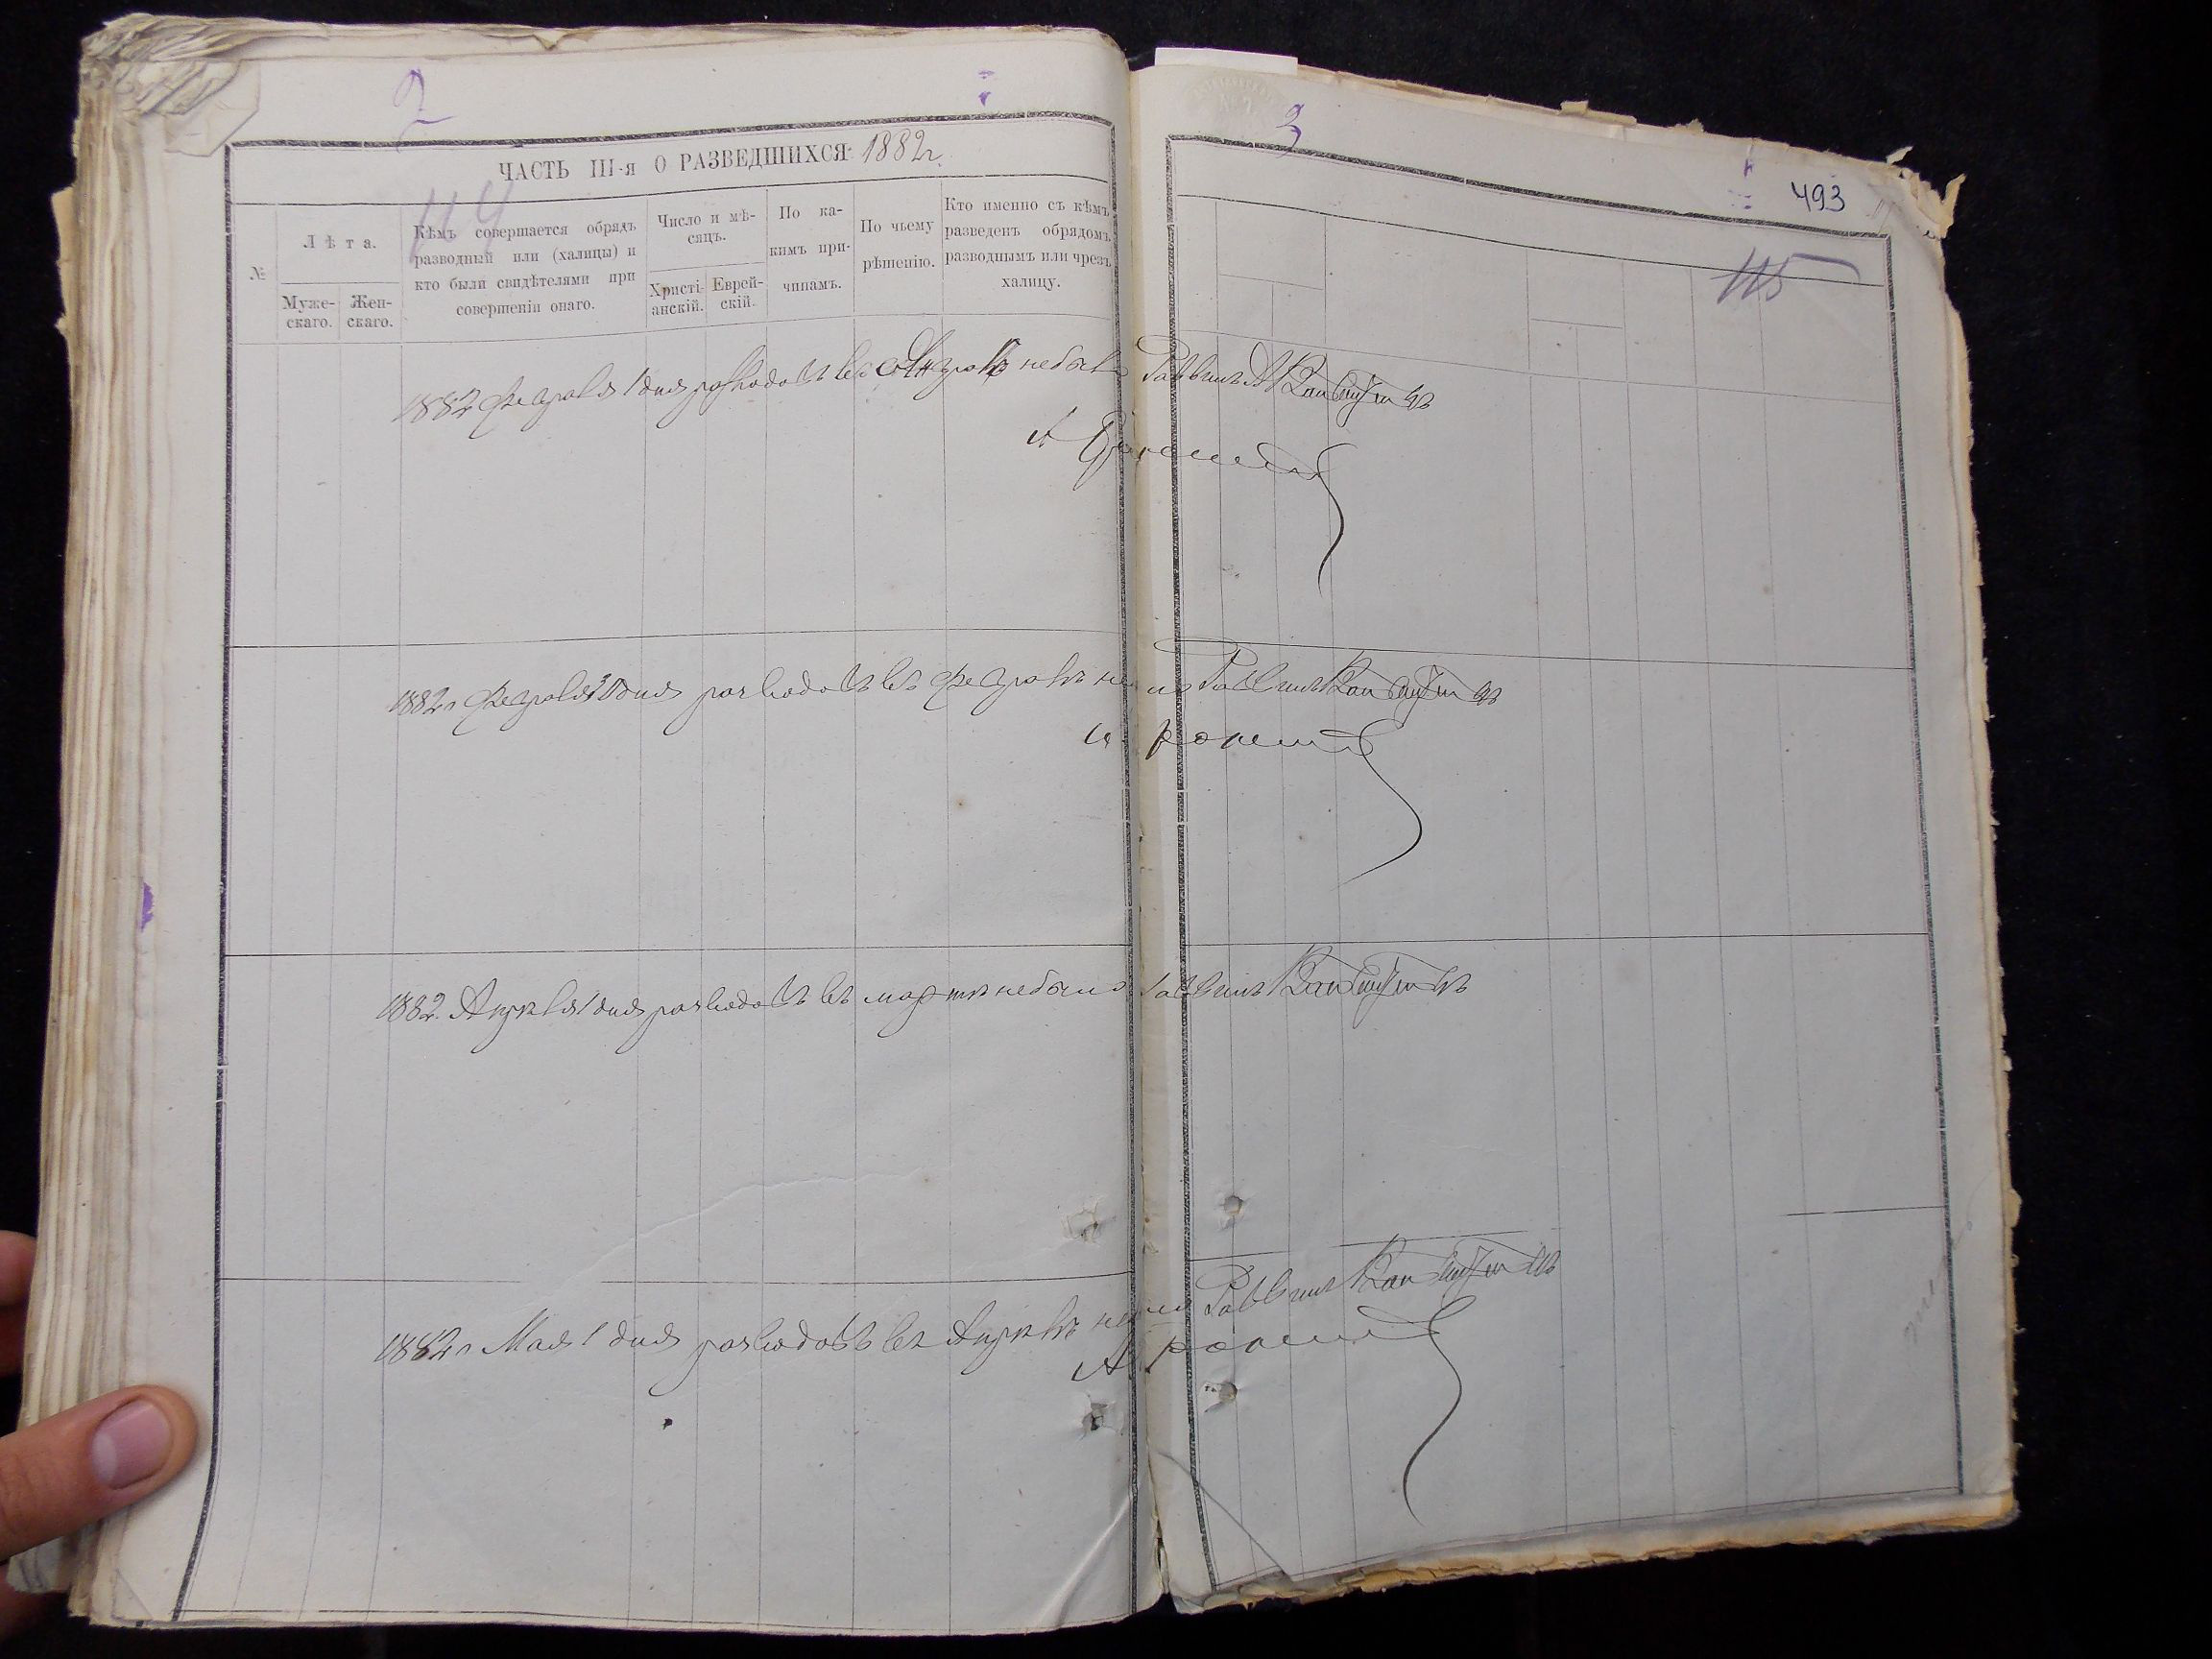 2
3
493
ЧАСТЬ III-я О РАЗВЕДШИХСЯ 1882г.
114
115
№
Лѣта.
Муже-
скаго.
Жен-
скаго.
Кѣмъ совершается обрядъ
разводный или (халицы) и
кто были свидѣтелями при
совершеніи онаго.
Число и мѣ-
сяцъ.
Христі-
анскій.
Еврей-
скій.
По ка-
кимъ при-
чинамъ.
По чьему
рѣшенію.
Кто именно съ кѣмъ
разведенъ обрядомъ
разводнымъ или чрезъ
халицу.
1882 Февраля 1 дня разводовъ въ Январѣ небыло Раввинъ
1882г Февраля дня разводовъ въ Февралѣ Раввинъ
1882. Апрѣля 1 дня разводовъ въ мартѣ небыло Раввинъ
1882г Мая 1 дня разводовъ въ Апрѣлѣ Раввинъ